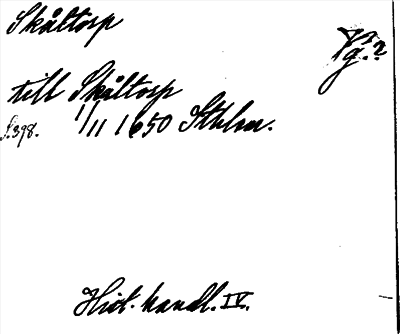 Skåltorp
Vg.?
till Skåltorp
S.398. 1/11 1650 Sthlm.
Hist. handl. IV.